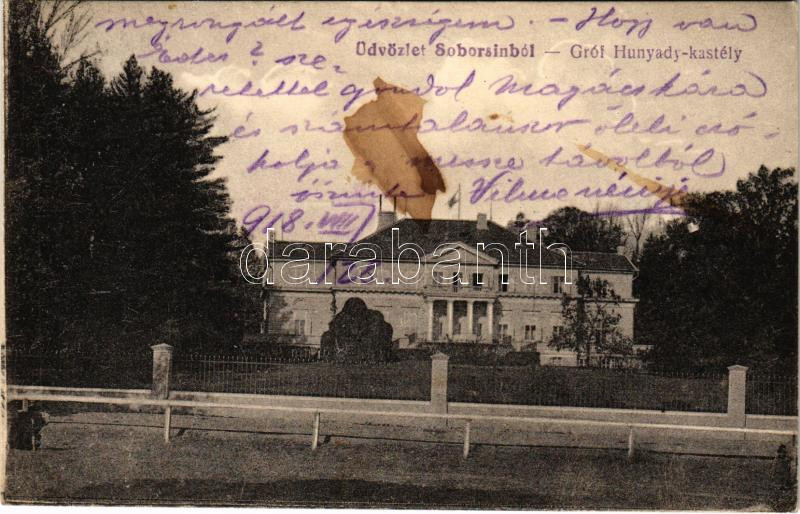 megrongált egészségem. – Hogy van
Üdvözlet Soborsinból — Gróf Hunyady-kastély
Édes? sze-
retettel gondol Magácskára
és számtalanszor öleli csó-
kolja a messze távolból
őszinte Vilmanénije
918. VIII/
120.
darabanth